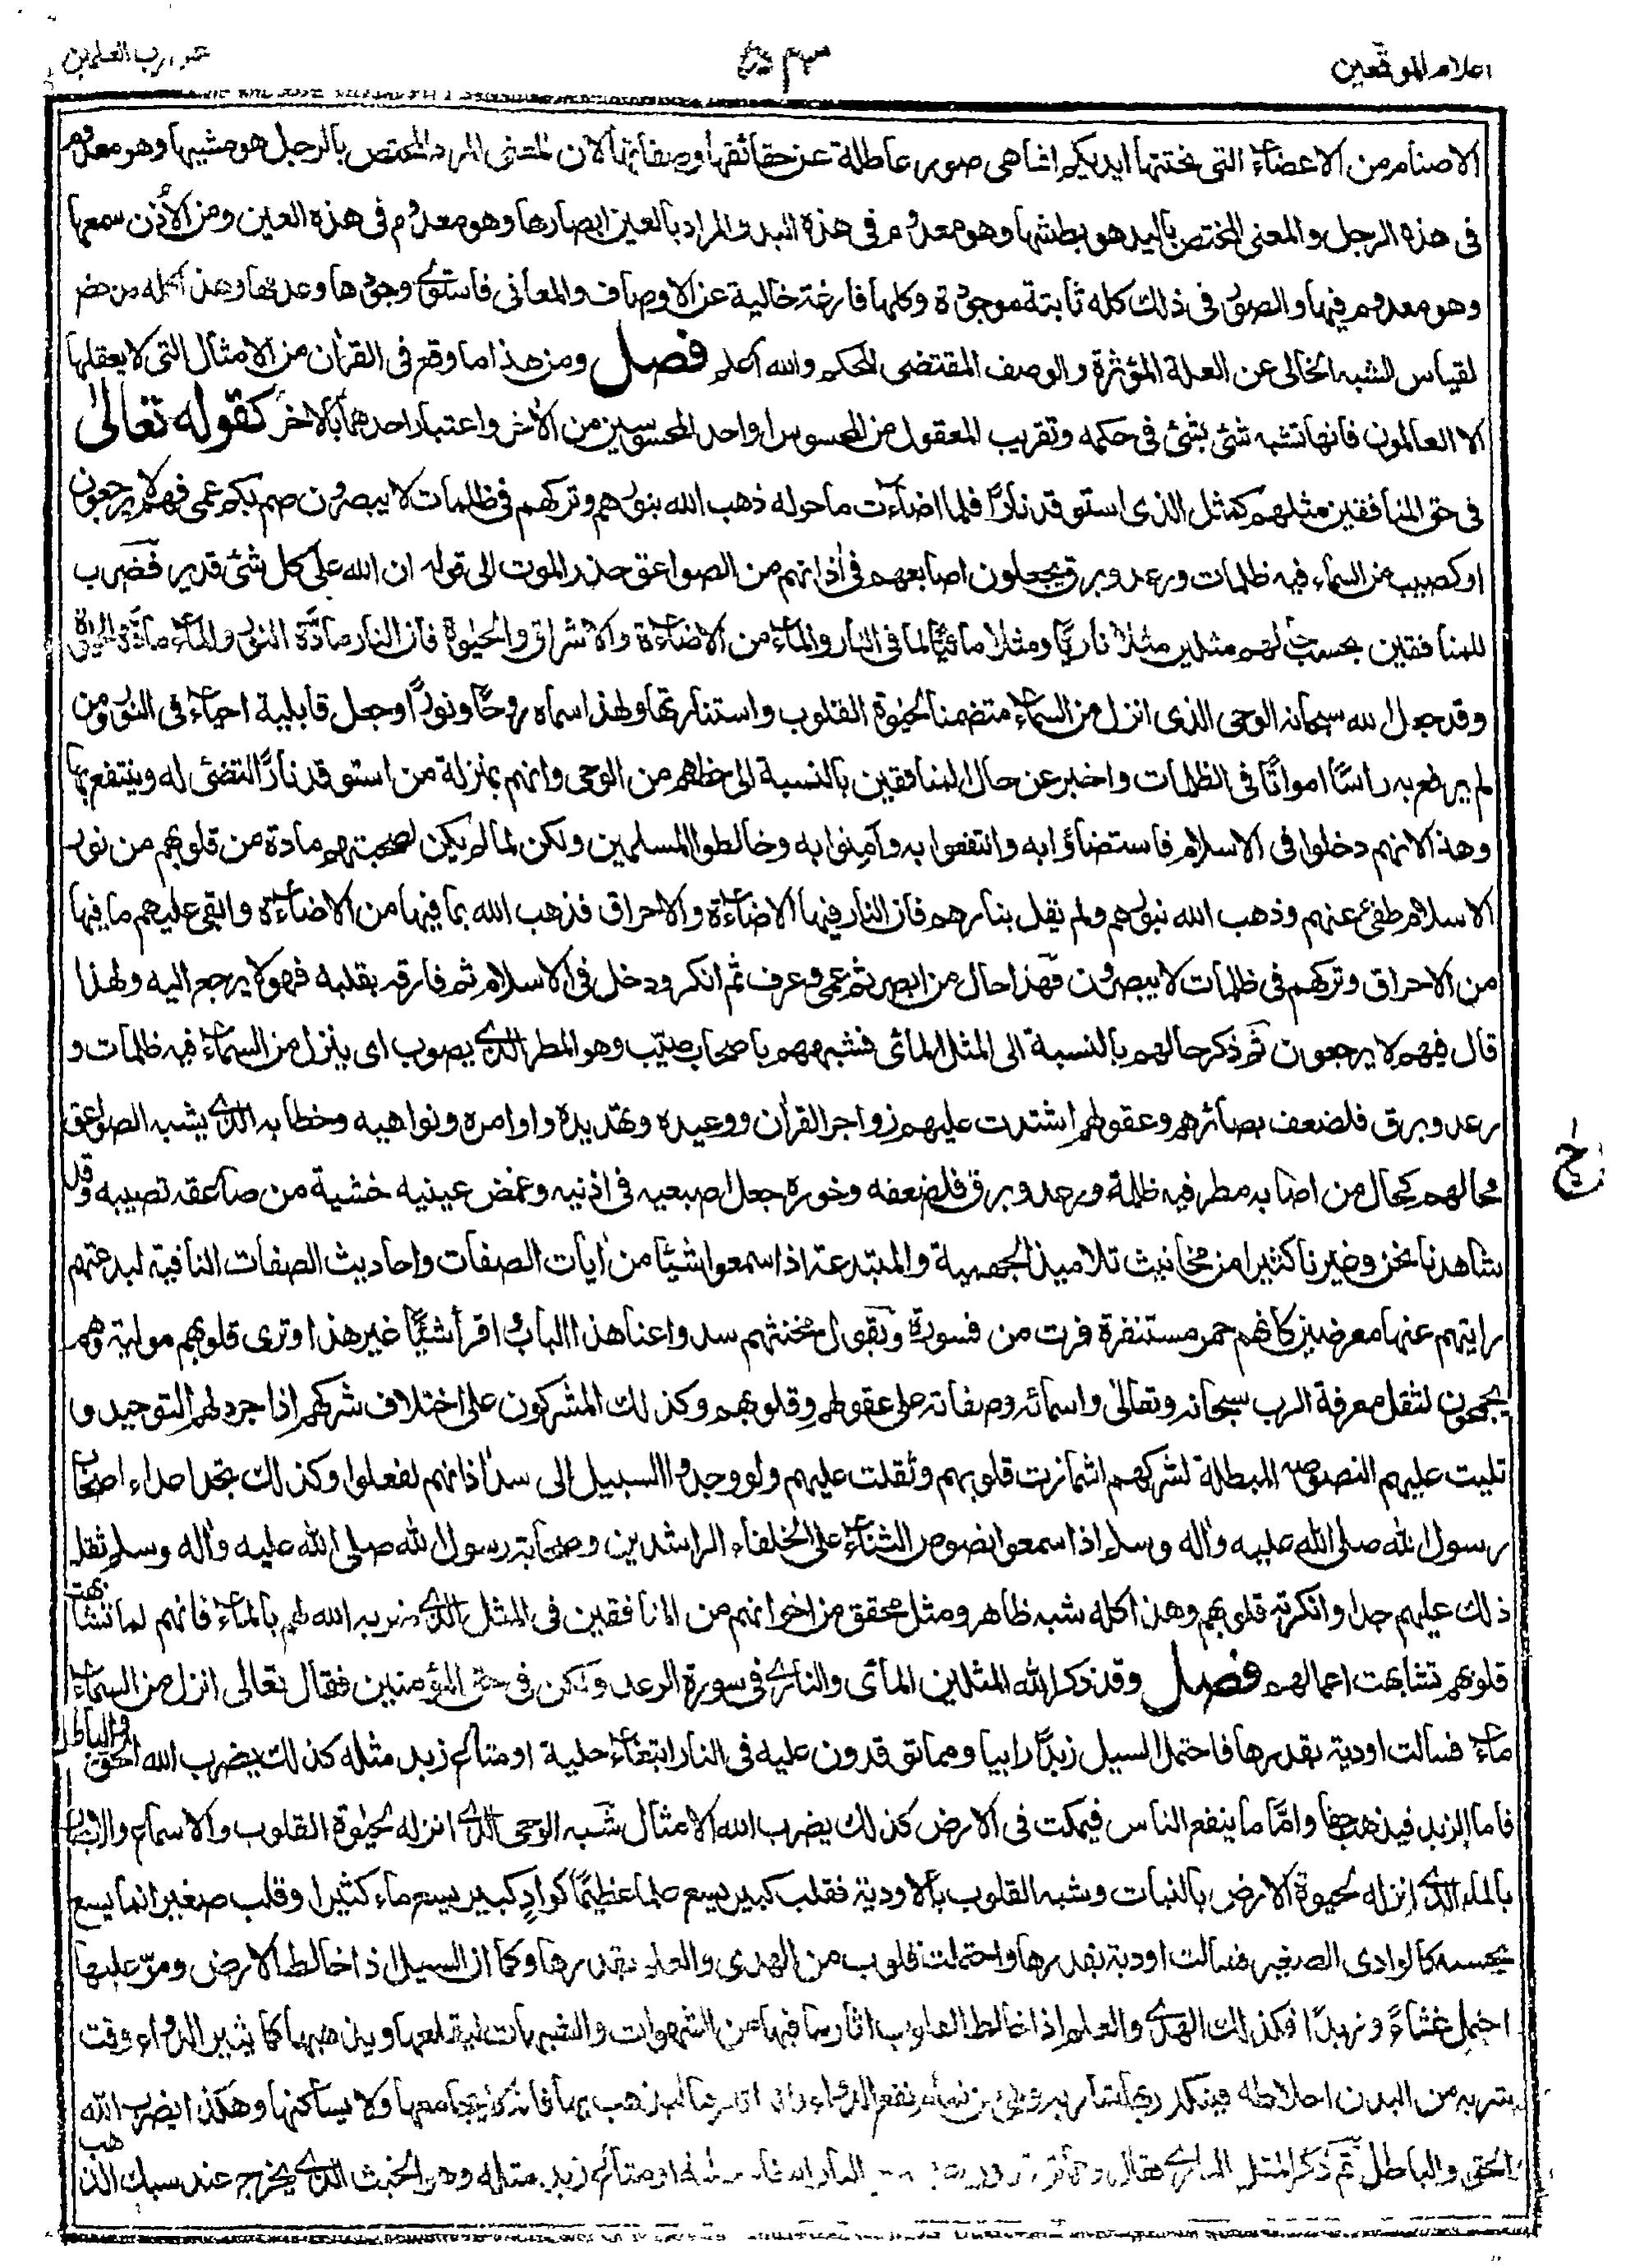 اعلام الموقعين
عن رب العلمين
الاصنام من الاعضاء التى نحتتها ايديكم انما هى صور عاطلة عن حقائقها وصفاتها لان المعنى المراد المختص بالرجل هو مشيها وهو معدوم
فى هذه الرجل والمعنى المختص باليد هو بطشها وهو معدوم فى هذة اليد والمراد بالعين ابصارها وهو معدوم فى هذه العين ومن الأُذن سمعها
وهو معدوم فيها والصور فى ذلك كله ثابتة موجودة وكلها فارغة خالية عن الاوصاف والمعانى فاستوى وجودها وعدمها وهذا كله مدحض
لقياس الشبه الخالى عن العلة المؤثرة والوصف المقتضى للحكم والله اعلم فصل ومن هذا ما وقع فى القران من الامثال التى لا يعقلها
الا العالمون فانها تشبه شئ بشئ فى حكمه وتقريب المعقول من المحسوس او احد المحسوسين من الأخر واعتبار احدهما بالاخر كقوله تعالى
فى حق المنافقين مثلهم كمثل الذى استوقد نارًا فلما اضاءت ما حوله ذهب الله بنورهم وتركهم فى ظلمات لا يبصرون صم بكم عمى فهم لا يرجعون
او كصيب من السماء فيه ظلمات ورعد وبرق يجعلون اصابعهم فى أذانهم من الصواعق حذر الموت الى قوله ان الله على كل شئ قدير فضرب
للمنافقين بحسب حالهم مثلين مثلًا ناريًا ومثلًا مائيًا لما فى النار والماء من الاضاءة والاشراق والحيوة فان النار مادّة النور والماء مادّة الحيوة
وقد جعل الله سبحانه الوحى الذى انزل من السماء متضمنا لحيوة القلوب واستنارتها ولهذا سماه روحًا ونورًا وجعل قابلية احياء فى النور ومن
لم يرفع به راسًا امواتًا فى الظلمات واخبر عن حال المنافقين بالنسبة الى حظهم من الوحى وانهم بمنزلة من استوقد نارًا لتضئ له وينتفع بها
وهذا لانهم دخلوا فى الاسلام فاستضاؤا به وانتفعوا به وآمنوا به وخالطوا المسلمين ولكن لما لم يكن لصحبتهم مادة من قلوبهم من نور
الاسلام طفئ عنهم وذهب الله بنورهم ولم يقل بنارهم فان النار فيها الاضاءة والاحراق فذهب الله بما فيها من الاضاءة وابقى عليهم ما فيها
من الاحراق وتركهم فى ظلمات لا يبصرون فهذا حال من ابصر ثم عمى وعرف ثم انكر ودخل فى الاسلام ثم فارقه بقلبه فهو لا يرجع اليه ولهذا
قال فهم لا يرجعون ثم ذكر حالهم بالنسبة الى المثل المائى فشبههم باصحاب صيّب وهو المطر الذى يصوب اى ينزل من السماء فيه ظلمات و
رعد وبرق فلضعف بصائرهم وعقولهم اشتدت عليهم زواجر القرأن ووعيده وتهديده واوامره ونواهيه وخطابه الذى يشبه الصواعق
فحالهم كحال من اصابه مطر فيه ظلمة ورعد وبرق فلضعفه وخوره جعل اصبعيه فى اذنيه وغمض عينيه خشية من صاعقه تصيبه وقد
شاهدنا نحن وغيرنا كثيرا من مخانيث تلاميذ الجهمية والمبتدعة اذا سمعوا شيئًا من أيات الصفات واحاديث الصفات النافية لبدعتهم
رايتهم عنها معرضين كانهم حمر مستنفرة فرت من قسورة ويقول مخنثهم سدوا عنا هذا الباب واقرأ شيئًا غير هذا وترى قلوبهم مولية وهم
يجمحون لثقل معرفة الرب سبحانه وتعالى واسمائه وصفاته على عقولهم وقلوبهم وكذلك المشركون على اختلاف شركهم اذا جرد لهم التوحيد و
تليت عليهم النصوص المبطلة لشركهم اشمازت قلوبهم وثقلت عليهم ولو وجدوا السبيل الى سد أذانهم لفعلوا وكذلك تجد اعداء اصحاب
رسول الله صلى الله عليه وأله وسلم اذا سمعوا نصوص الثناء على الخلفاء الراشدين وصحابة رسول الله صلى الله عليه وأله وسلم ثقل
ذلك عليهم جدا وانكرته قلوبهم وهذا كله شبه ظاهر ومثل محقق من اخوانهم من المنافقين فى المثل الذى ضربه الله لهم بالماء فانهم لما تشابهت
قلوبهم تشابهت اعمالهم فصل وقد ذكر الله المثلين المائى والنارى فى سورة الرعد ولكن فى حق المؤمنين فقال تعالى انزل من السماء
ماء فسالت اودية بقدرها فاحتمل السيل زبدًا رابيا ومما توقدون عليه فى النار ابتغاء حلية او متاع زبد مثله كذلك يضرب الله الحق والباطل
فاما الزبد فيذهب جفا وامّا ما ينفع الناس فيمكث فى الارض كذلك يضرب الله الامثال شبه الوحى الذى انزله لحيوة القلوب والاسماع والابصار
بالماء الذى انزله لحيوة الارض بالنبات وشبه القلوب بالاودية فقلب كبير يسع علما عظيمًا كوادٍ كبير يسع ماء كثيرا وقلب صغير انما يسع
بحسبه كالوادى الصغير فسالت اودية بقدرها واحتملت قلوب من الهدى والعلم بقدرها وكما ان السيل اذا خالط الارض ومرّ عليها
احتمل غثاءً وزبدًا فكذلك الهدى والعلم اذا خالط القلوب اثار ما فيها من الشهوات والشبهات ليقلعها ويذهبها كما يثير الدواء وقت
شربه من البدن اخلاطه فيتكدر بها شاربه وهى من تمام نفع الدواء فانه اثارها ليذهب بها فانه لا يجامعها ولا يساكنها وهكذا يضرب الله
الحق والباطل ثم ذكر المثل النارى فقال ومما توقدون عليه فى النار ابتغاء حلية او متاع زبد مثله وهو الخبث الذى يخرج عند سبك الذهب